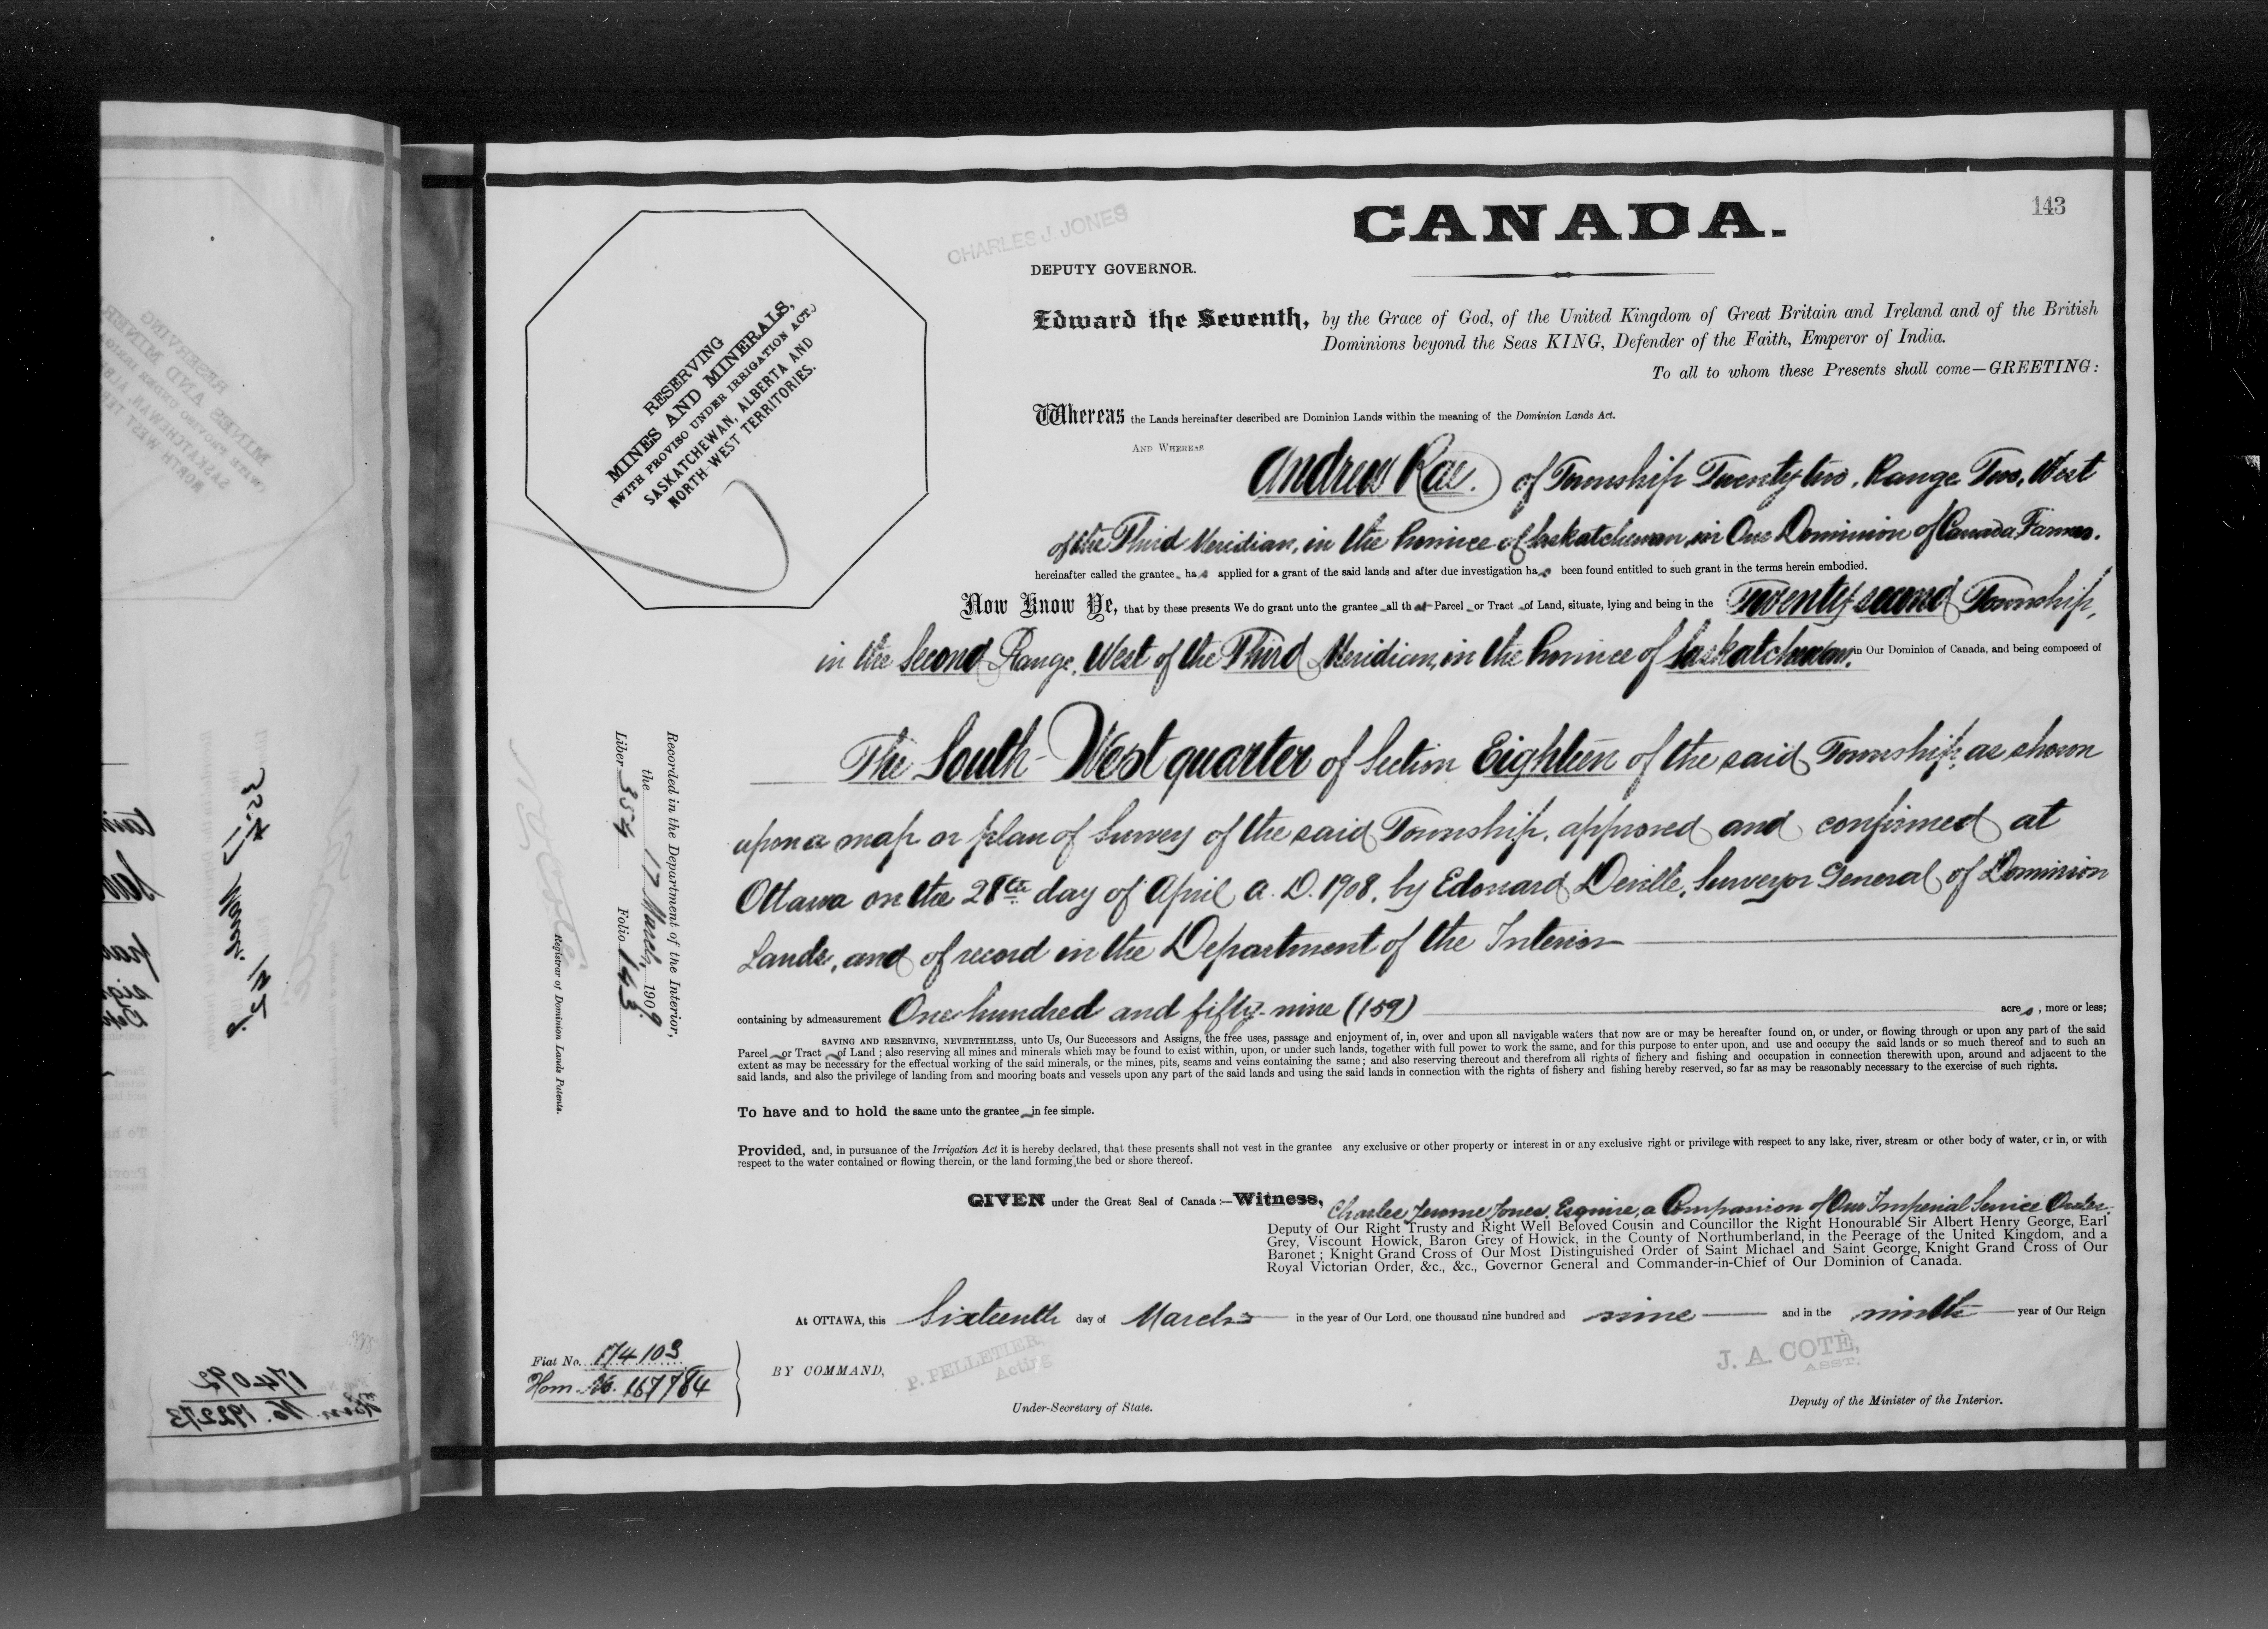 143
CANADA.
CHARLES J. JONES
DEPUTY GOVERNOR.
RESERVING
MINES AND MINERALS,
(WITH PROVISO UNDER IRRIGATION ACT.)
SASKATCHEWAN, ALBERTA AND
NORTH-WEST TERRITORIES.
Edward the Seventh, by the Grace of God, of the United Kingdom of Great Britain and Ireland and of the British
Dominions beyond the Seas KING, Defender of the Faith, Emperor of India.
To all to whom these Presents shall come—GREETING:
Whereas the Lands hereinafter described are Dominion Lands within the meaning of the Dominion Lands Act.
AND WHEREAS
Andrew Rae. of Township Twenty-two, Range Two, West
of the Third Meridian, in the Province of Saskatchewan, in Our Dominion of Canada, Farmer.
hereinafter called the grantee has applied for a grant of the said lands and after due investigation has been found entitled to such grant in the terms herein embodied.
Now Know Ye, that by these presents We do grant unto the grantee all that Parcel or Tract of Land, situate, lying and being in the Twenty second Township,
in the Second Range, West of the Third Meridian, in the Province of Saskatchewan, in Our Dominion of Canada, and being composed of
The South-West quarter of Section Eighteen of the said Township, as shown
upon a map or plan of Survey of the said Township, approved and confirmed at
Ottawa on the 28th day of April A.D. 1908, by Edouard Deville, Surveyor General of Dominion
Lands, and of record in the Department of the Interior
containing by admeasurement One hundred and fifty-nine (159) acres, more or less;
SAVING AND RESERVING, NEVERTHELESS, unto Us, Our Successors and Assigns, the free uses, passage and enjoyment of, in, over and upon all navigable waters that now are or may be hereafter found on, or under, or flowing through or upon any part of the said
Parcel or Tract of Land; also reserving all mines and minerals which may be found to exist within, upon, or under such lands, together with full power to work the same, and for this purpose to enter upon, and use and occupy the said lands or so much thereof and to such an
extent as may be necessary for the effectual working of the said minerals, or the mines, pits, seams and veins containing the same; and also reserving thereout and therefrom all rights of fichery and fishing and occupation in connection therewith upon, around and adjacent to the
said lands, and also the privilege of landing from and mooring boats and vessels upon any part of the said lands and using the said lands in connection with the rights of fishery and fishing hereby reserved, so far as may be reasonably necessary to the exercise of such rights.
To have and to hold the same unto the grantee in fee simple.
Provided, and, in pursuance of the Irrigation Act it is hereby declared, that these presents shall not vest in the grantee any exclusive or other property or interest in or any exclusive right or privilege with respect to any lake, river, stream or other body of water, or in, or with
respect to the water contained or flowing therein, or the land forming the bed or shore thereof.
GIVEN under the Great Seal of Canada:—Witness, Charles Jerome Jones, Esquire, a Companion of Our Imperial Service Order,
Deputy of Our Right Trusty and Right Well Beloved Cousin and Councillor the Right Honourable Sir Albert Henry George, Earl
Grey, Viscount Howick, Baron Grey of Howick, in the County of Northumberland, in the Peerage of the United Kingdom, and a
Baronet; Knight Grand Cross of Our Most Distinguished Order of Saint Michael and Saint George, Knight Grand Cross of Our
Royal Victorian Order, &c., &c., Governor General and Commander-in-Chief of Our Dominion of Canada.
At OTTAWA, this Sixteenth day of March in the year of Our Lord, one thousand nine hundred and nine and in the ninth year of Our Reign
BY COMMAND,
P. PELLETIER,
Acting
Under-Secretary of State.
J. A. COTÉ,
ASST.
Deputy of the Minister of the Interior.
Fiat No. 174103
Hom. No. 167784
Recorded in the Department of the Interior,
the 17 March, 1909.
Liber 354 Folio 143
Registrar of Dominion Lands Patents.
174092
Hom. No. 192273